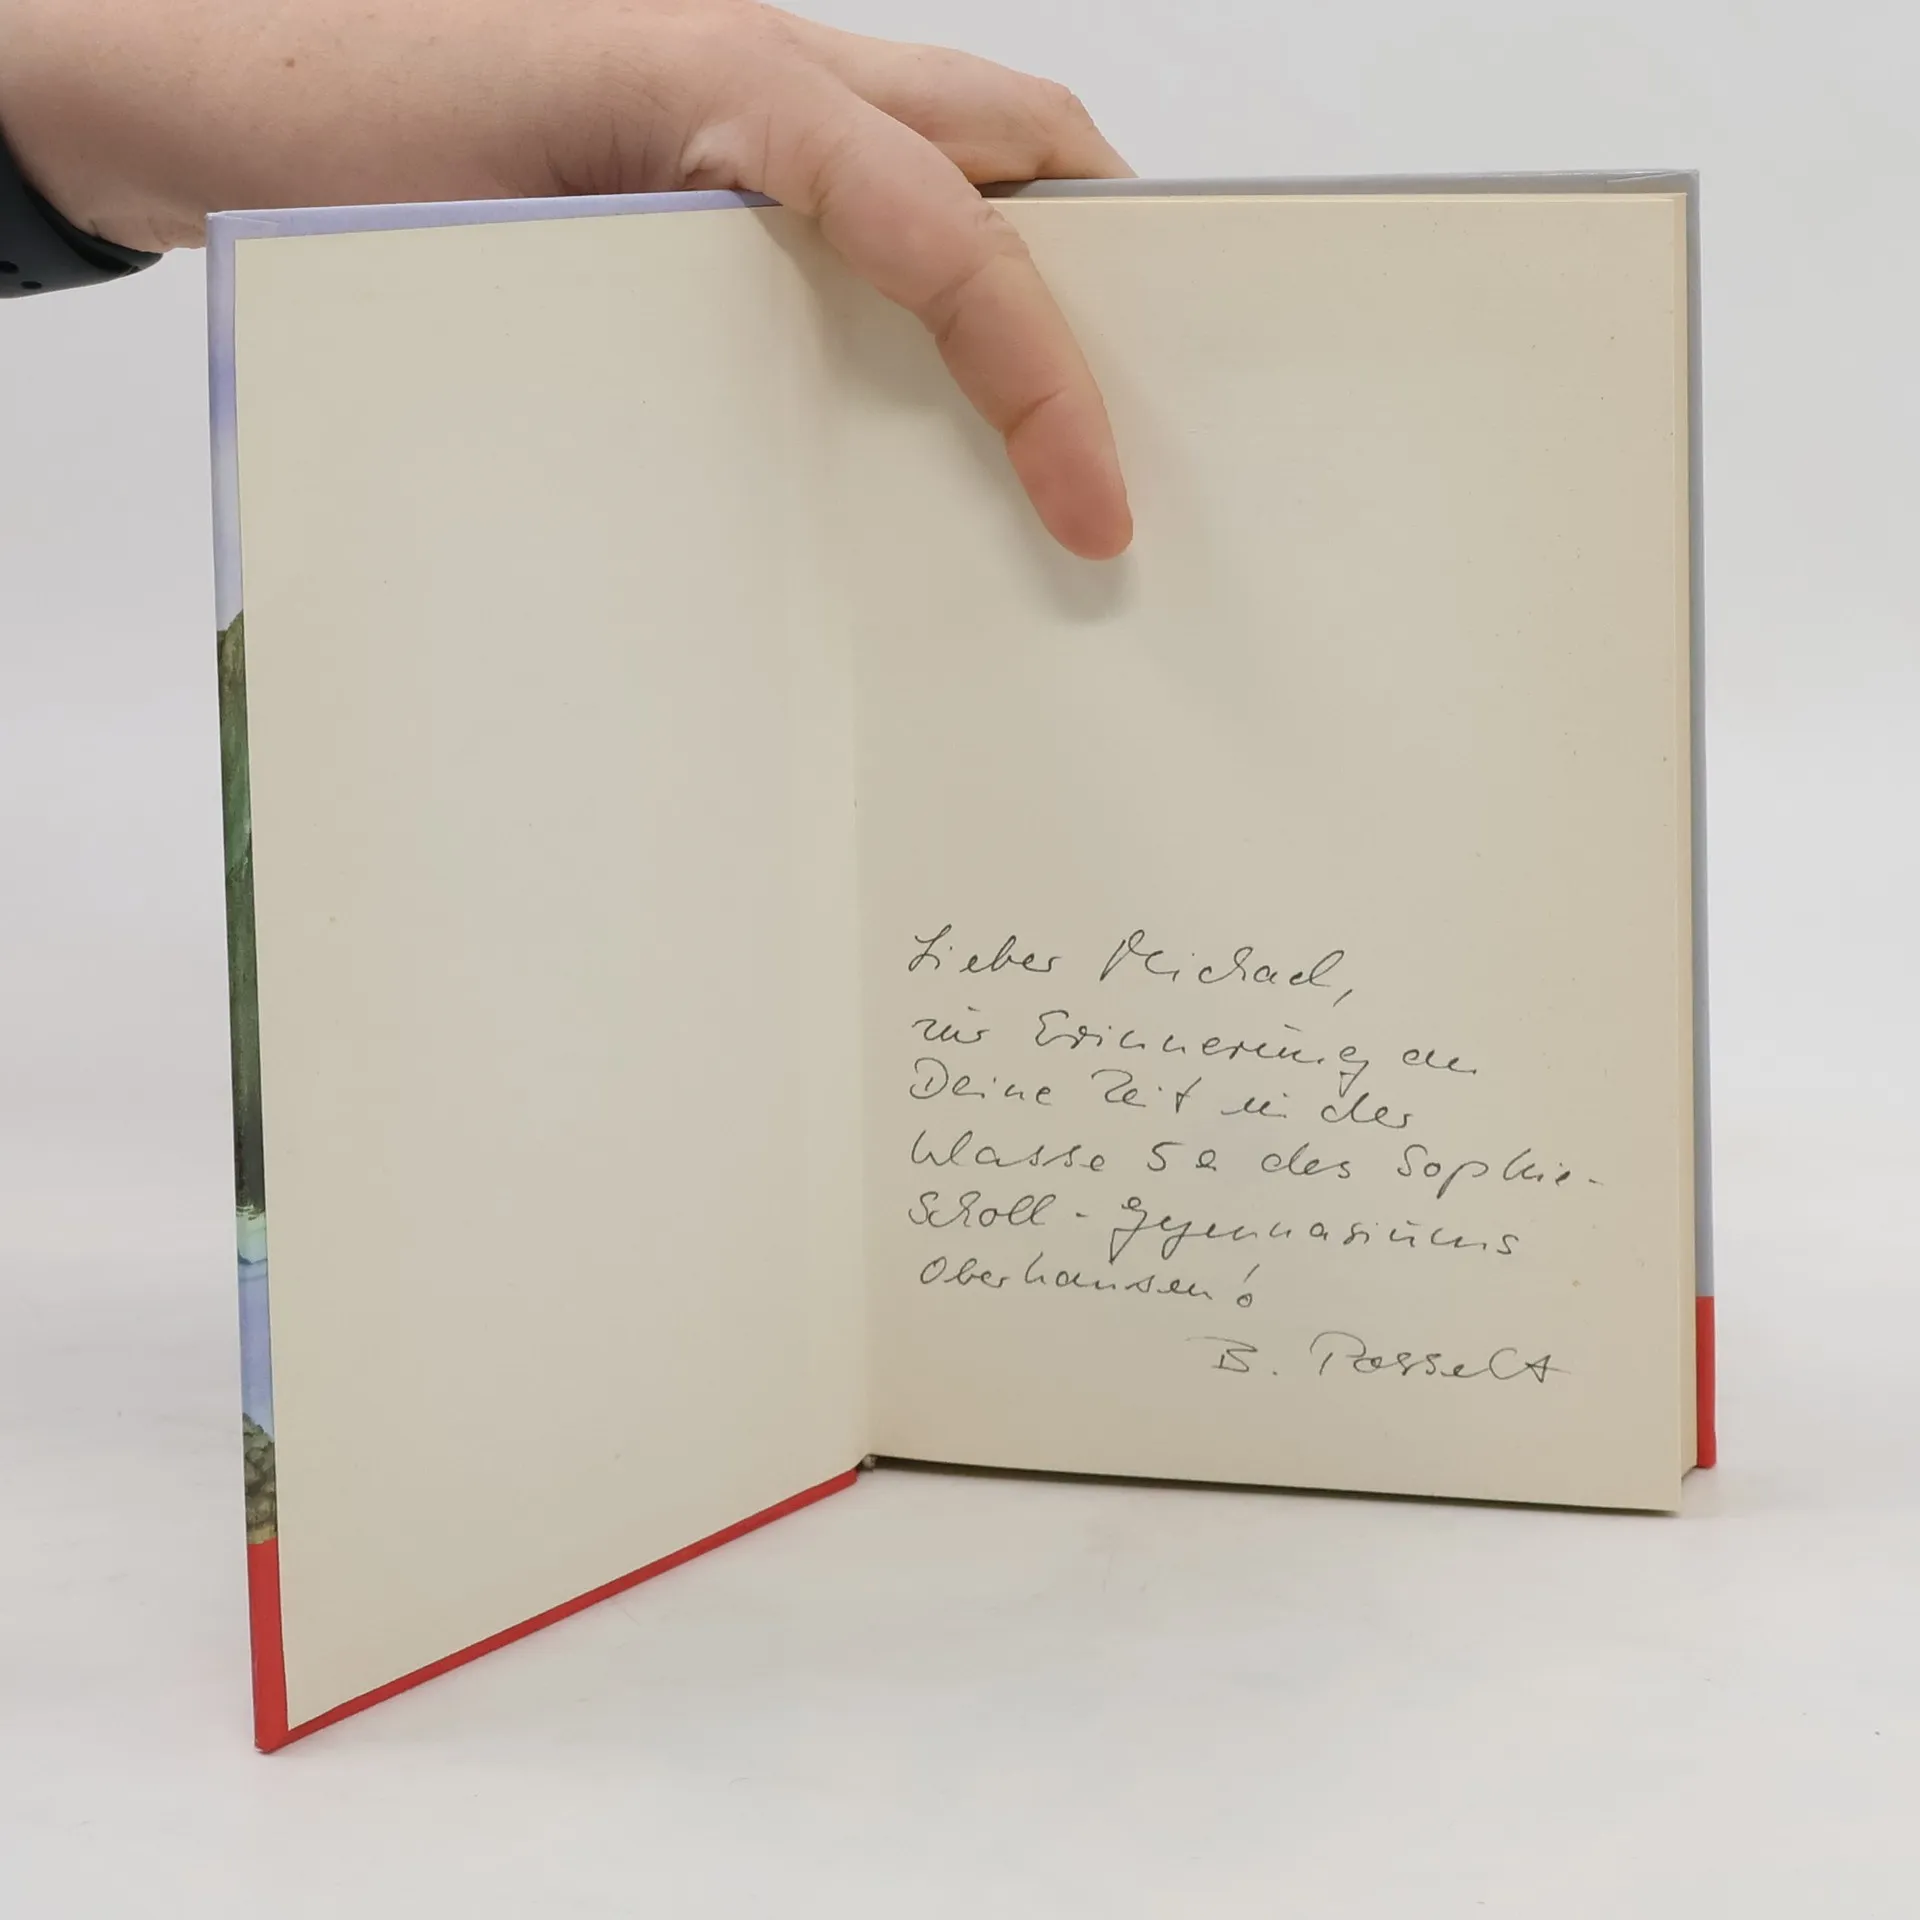 Lieber Michael,
zur Erinnerung an
Deine Zeit in der
Klasse 5a des Sophie-
Scholl-Gymnasiums
Oberhausen!
B. Posselt